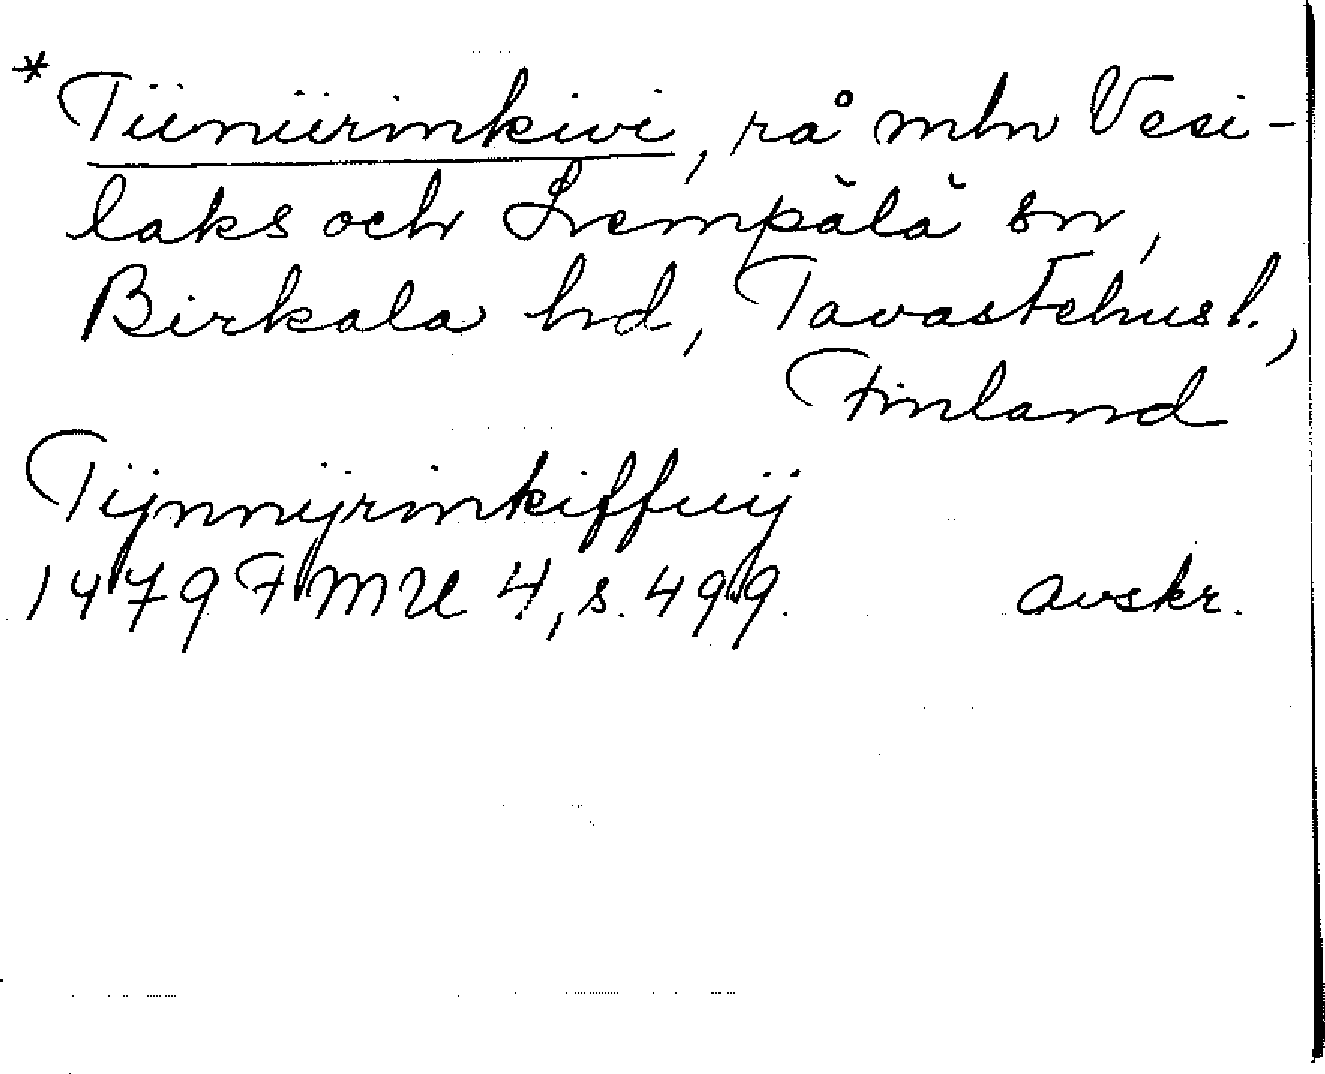 *Tiiniirinkivi, rå mln Vesi-
laks och Lempälä sn,
Birkala hd, Tavastehus l.,
Finland
Tijnnijrinkiffuij
1479 FMU 4, s. 499. avskr.